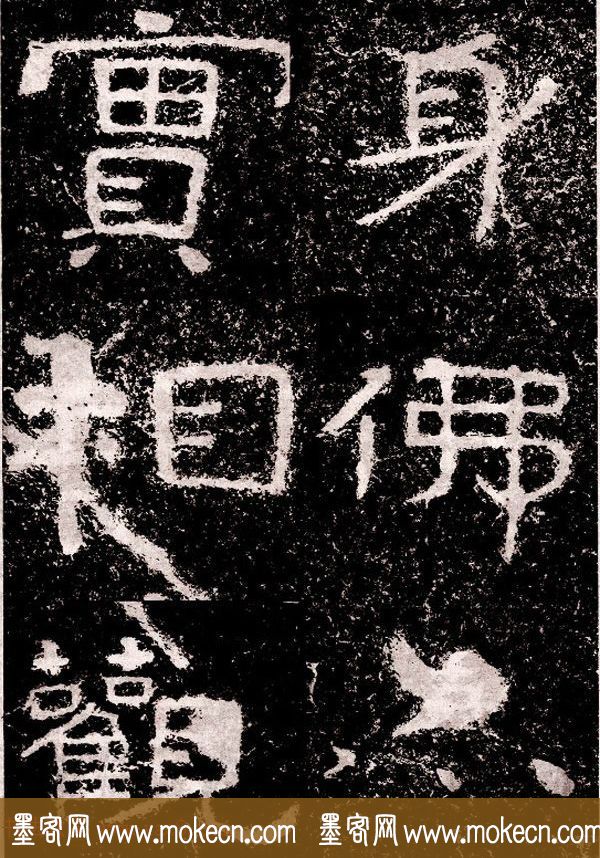 身佛
實相觀
墨客网 www.mokecn.com 墨客网 www.mokecn.com